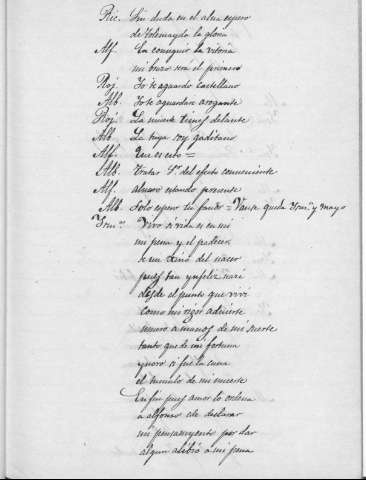 Ric. Sin duda en el alva espero
de Tolemayda la gloria
Alf. En conseguir la vitoria
mi brazo será el primero
Roj. Yo te aguardo castellano
Alb. Yo te aguardare arogante
Roj. La muerte tienes delante
Alb. La tuya soy gaditano
Alf. Que es esto =
Alb. Tratar Sr. del efeto combeniente
Alf. alvaro estando presente
Alb. Solo espero tu fando = Vanse queda Ysmª y mayo
Ysmª. Vivo si vida es en mi
mi pena y el padecer
de un Reino del nacer
pues tan ynfeliz naci
desde el punto que vivi
como mi rigor advierte
muero a manos de mi suerte
tanto que de mi fortuna
ygnoro si fue la cuna
el tumulo de mi muerte
En fin pues amor lo ordena
a alfonso e de declarar
mi pensamyento por dar
algun alibio a mi pena